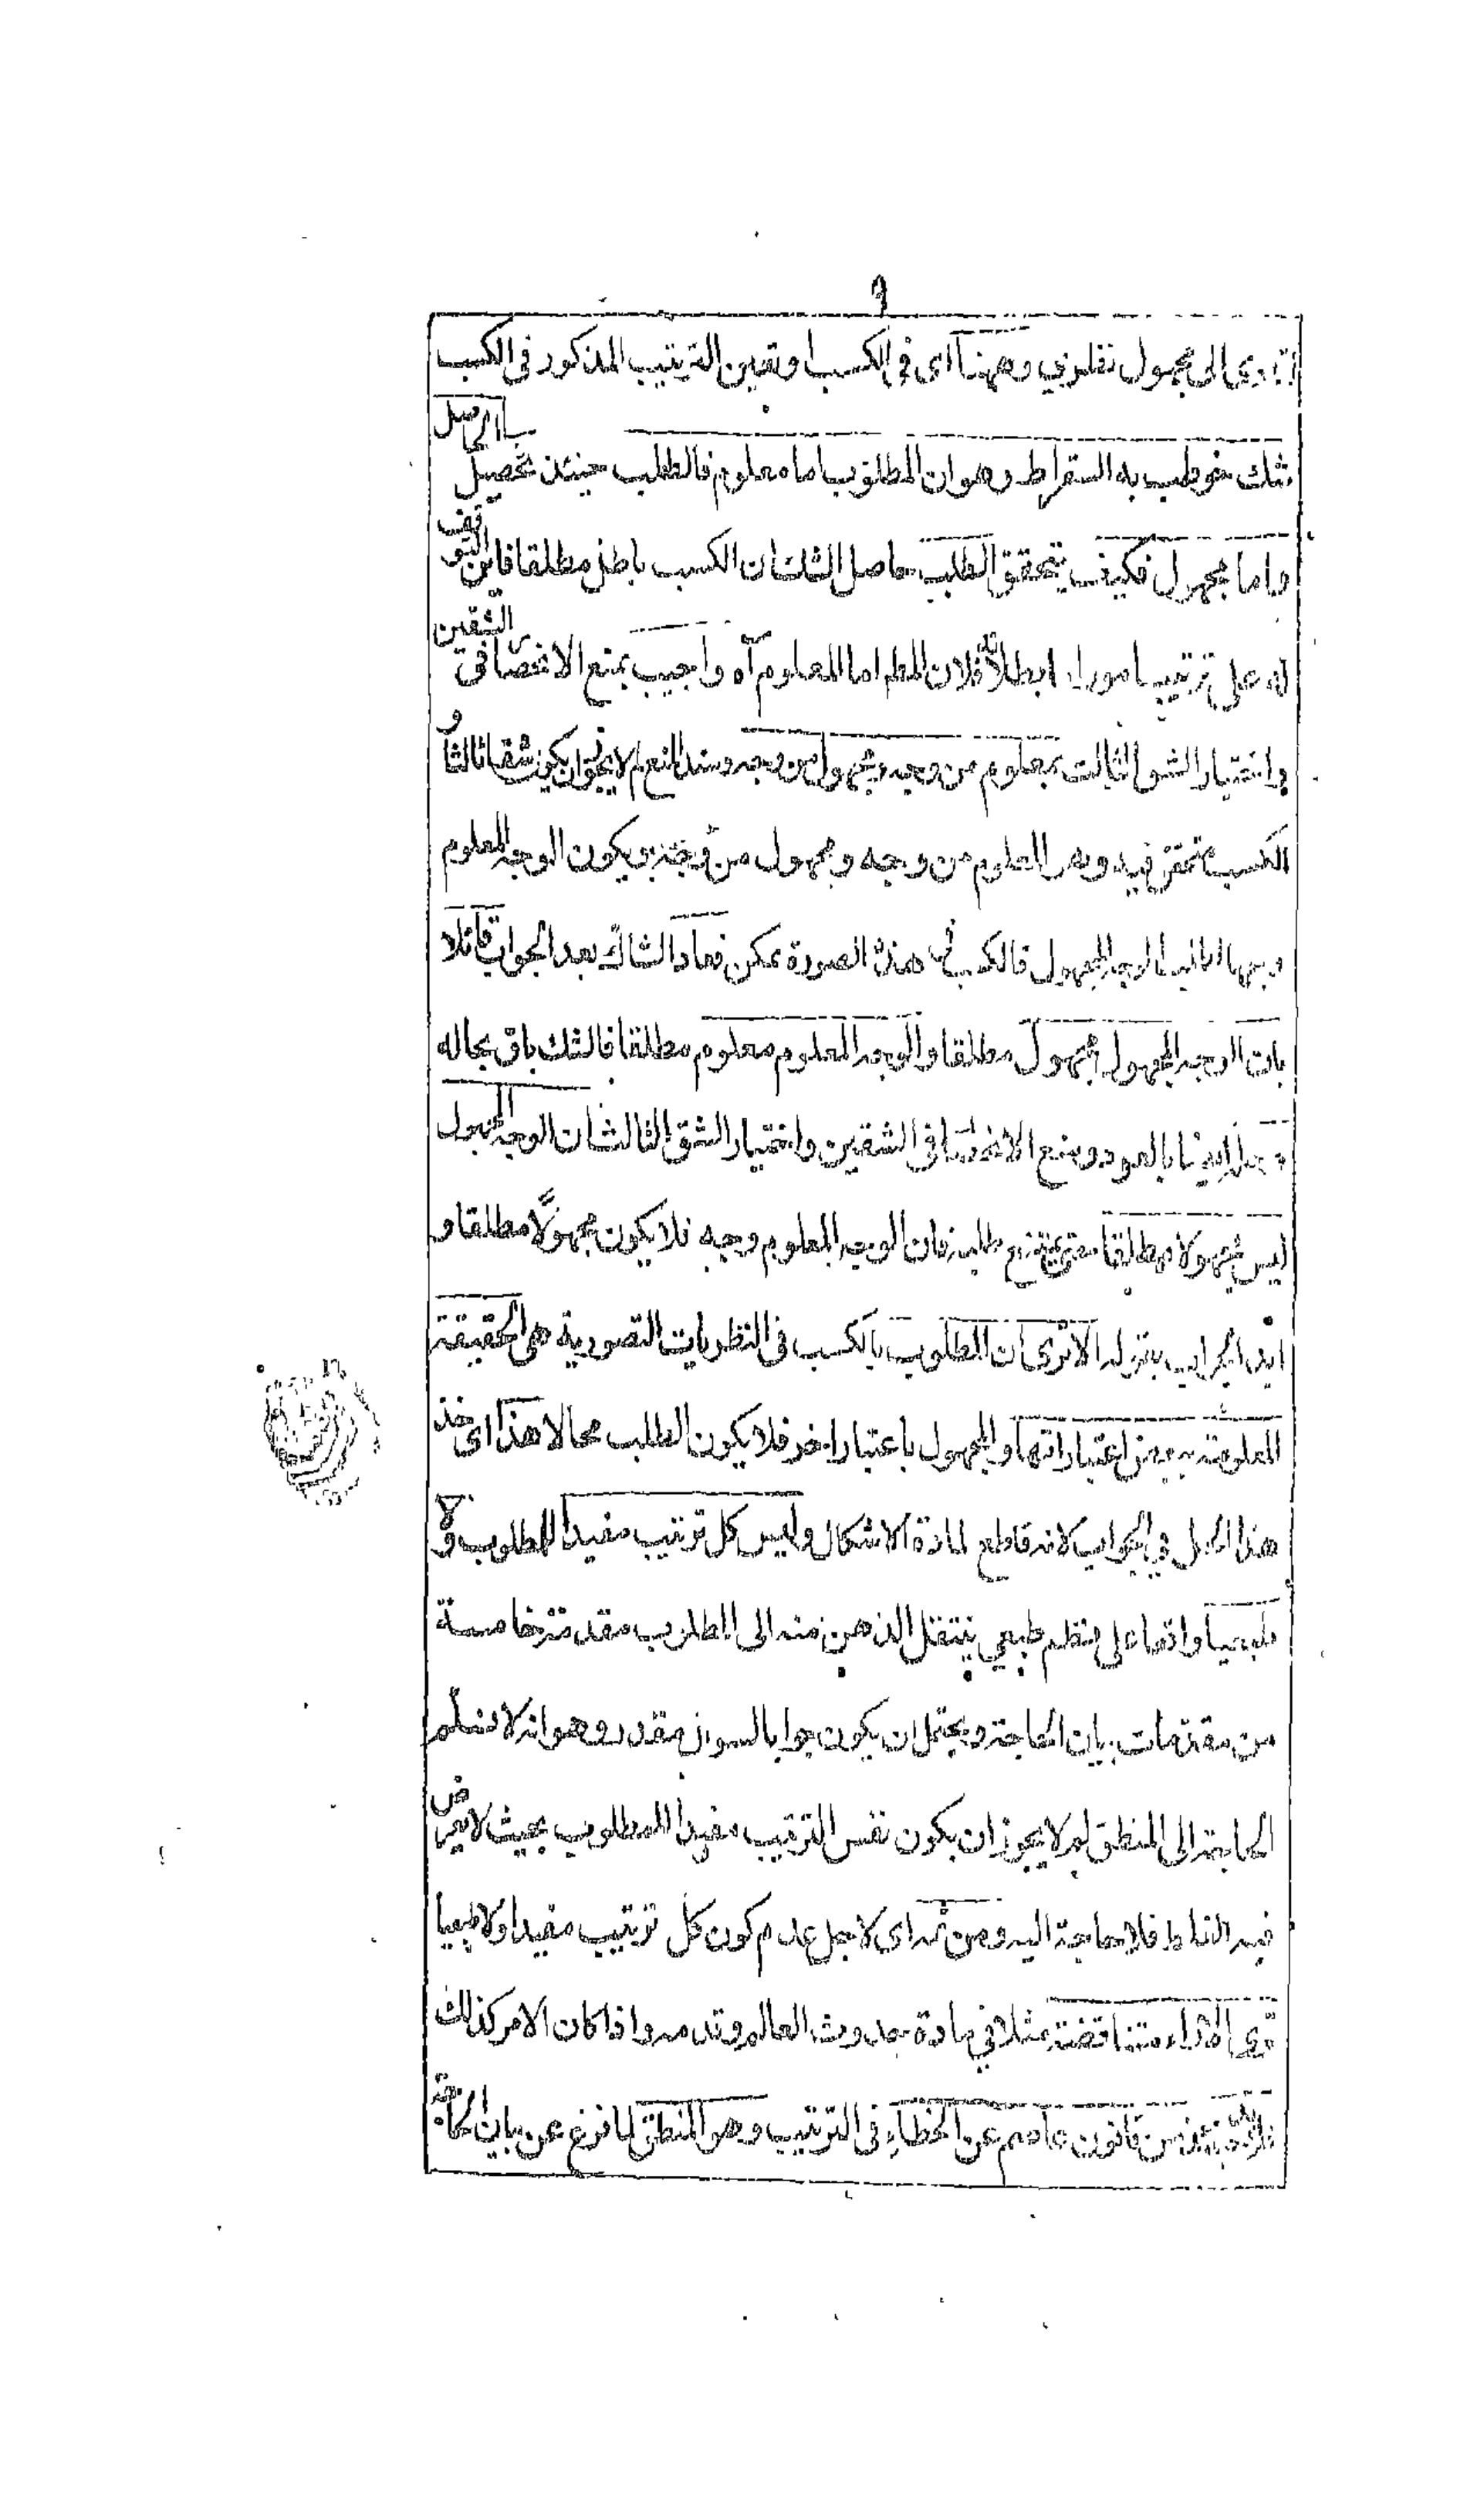 ٩
الى مجهول نظري وههنا اى فى الكسب او تعين الترتيب المذكور فى الكسب
شك خوطب به السقراط وهو ان المطلوب اما معلوم فالطلب حينئذ تحصيل الحاصل
واما مجهول فكيف يتحقق الطلب حاصل الشك ان الكسب باطل مطلقا فاين التوقف
له على ترتيب امور اما بطلانه فلان المطم اما المعلوم آه واجيب بمنع الانحصار فى الشقين
واختيار الشق الثالث بمعلوم من وجه ومجهول من وجه وسند المنع لم لا يجوز ان يكون شقا ثالثا و
الكسب متحقق فيه وهو المعلوم من وجه ومجهول من وجه ويكون الوجه المعلوم
الوجه المجهول فالكسب فى هذه الصورة ممكن فعاد الشاك بعد الجواب قائلا
بان الوجه المجهول مجهول مطلقا والوجه المعلوم معلوم مطلقا فالشك باق بحاله
بالعود ومنع الانحصار فى الشقين واختيار الشق الثالث ان الوجه المجهول
ليس مجهولا مطلقا حتى يمتنع طلبه فان الوجه المعلوم وجهه فلا يكون مجهولا مطلقا و
ايد الجواب بقوله الا ترى ان المطلوب بالكسب فى النظريات التصورية هى الحقيقة
المعلومة ببعض اعتباراتها والمجهول باعتبار اخر فلا يكون الطلب محالا هذا اى خذ
هذا فى الجواب لانه قاطع لمادة الاشكال وليس كل ترتيب مفيدا للمطلوب ولا
طبعيا واقعا على نظم طبعي ينتقل الذهن منه الى المطلوب مقدمة خامسة
من مقدمات بيان الحاجة ويحتمل ان يكون جوابا لسوال مقدر وهو انه لا نسلم
الحاجة الى المنطق لم لا يجوز ان يكون نفس الترتيب مفيدا للمطلوب بحيث لا يعرض
فيه الغلط فلا حاجة اليه ومن ثم اى لاجل عدم كون كل ترتيب مفيدا ولا طبعيا
ترى الاراء متناقضة مثلا فى مادة حدوث العالم وقدمه واذا كان الامر كذلك
فلا بد من قانون عاصم عن الخطاء فى الترتيب وهو المنطق لما فرغ عن بيان الحاجة